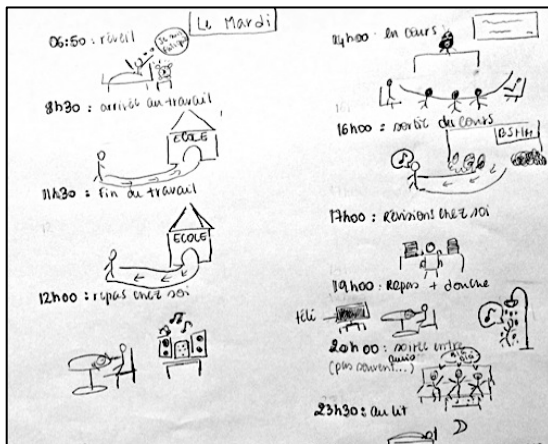 Le Mardi
06:50 : réveil
8h30 : arrivée au travail
ECOLE
11h30 : fin du travail
ECOLE
12h00 : repas chez soi
14h00 en cours
16h00 : sortie du cours
17h00 : Révisions chez soi
19h00 : Repas + douche
télé
20h00 : soirée entre
amis
(pas souvent...)
23h30 : au lit